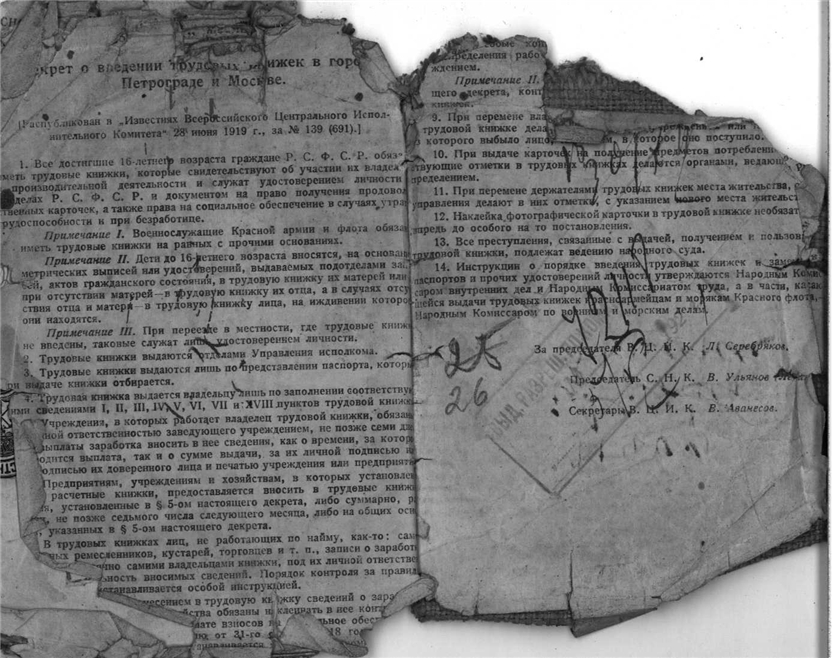 крет о введении трудовых книжек в горо
Петрограде и Москве.
[Распубликован в „Известиях Всероссийского Центрального Испол-
нительного Комитета" 28 июня 1919 г., за № 139 (691).]
1. Все достигшие 16-летнего возраста граждане Р. С. Ф. С. Р. обяз
меть трудовые книжки, которые свидетельствуют об участии их владел
производительной деятельности и служат удостоверением личности
делах Р. С. Ф. С. Р. и документом на право получения продовол
твенных карточек, а также права на социальное обеспечение в случаях утра
рудоспособности и при безработице.
Примечание I. Военнослужащие Красной армии и флота обяза
иметь трудовые книжки на равных с прочими основаниях.
Примечание II. Дети до 16-летнего возраста вносятся, на основан
метрических выписей или удостоверений, выдаваемых подотделами за
ей, актов гражданского состояния, в трудовую книжку их матерей или
при отсутствии матерей—в трудовую книжку их отца, а в случаях отсу
ствия отца и матери—в трудовую книжку лица, на иждивении которо
они находятся.
Примечание III. При переезде в местности, где трудовые книжк
не введены, таковые служат лишь удостоверением личности.
2. Трудовые книжки выдаются отделами Управления исполкома.
3. Трудовые книжки выдаются лишь по представлении паспорта, которы
ри выдаче книжки отбирается.
4. Трудовая книжка выдается владельцу лишь по заполнении соответству
ими сведениями I, II, III, IV, V, VI, VII и XVIII пунктов трудовой книжк
Учреждения, в которых работает владелец трудовой книжки, обязан
ной ответственностью заведующего учреждением, не позже семи дн
выплаты заработка вносить в нее сведения, как о времени, за котор
одится выплата, так и о сумме выдачи, за их личной подписью и
одписью их доверенного лица и печатью учреждения или предприяти
Предприятиям, учреждениям и хозяйствам, в которых установлен
расчетные книжки, предоставляется вносить в трудовые книжк
я, установленные в § 5-ом настоящего декрета, либо суммарно, р
, не позже седьмого числа следующего месяца, либо на общих осн
, указанных в § 5-ом настоящего декрета.
В трудовых книжках лиц, не работающих по найму, как-то: сам
ных ремесленников, кустарей, торговцев и т. п., записи о заработк
но самими владельцами книжки, под их личной ответстве
ьность вносимых сведений. Порядок контроля за правил
станавливается особой инструкцией.
несением в трудовую книжку сведений о зара
ства обязаны наклеивать в нее конт
ате взносов на льное обесп
ю, от 31-го 18 го
определения рабо
ждением.
Примечание II.
щего декрета, конт
книжек.
9. При перемене вла
трудовой книжке дела или
з которого выбыло лицо, м, в которое оно поступило.
10. При выдаче карточек на получение предметов потреблени
твующие отметки в трудовых книжках делаются органами, ведающ
ределением.
11. При перемене держателями трудовых книжек места жительства,
управления делают в них отметки, с указанием нового места жительст
12. Наклейка фотографической карточки в трудовой книжке необязат
впредь до особого на то постановления.
13. Все преступления, связанные с выдачей, получением и пользов
трудовой книжки, подлежат ведению народного суда.
14. Инструкции о порядке введения трудовых книжек и
паспортов и прочих удостоверений личности утверждаются Народным Комис
саром внутренних дел и Народным Комиссариатом труда, а в части, касаю
щейся выдачи трудовых книжек красноармейцам и морякам Красного флота,
Народным Комиссаром по военным и морским делам.
За председателя В. Ц. И. К. Л. Серебряков.
Председатель С. Н. К. В. Ульянов
Секретарь В. Ц. И. К. В. Аванесов.
25
26